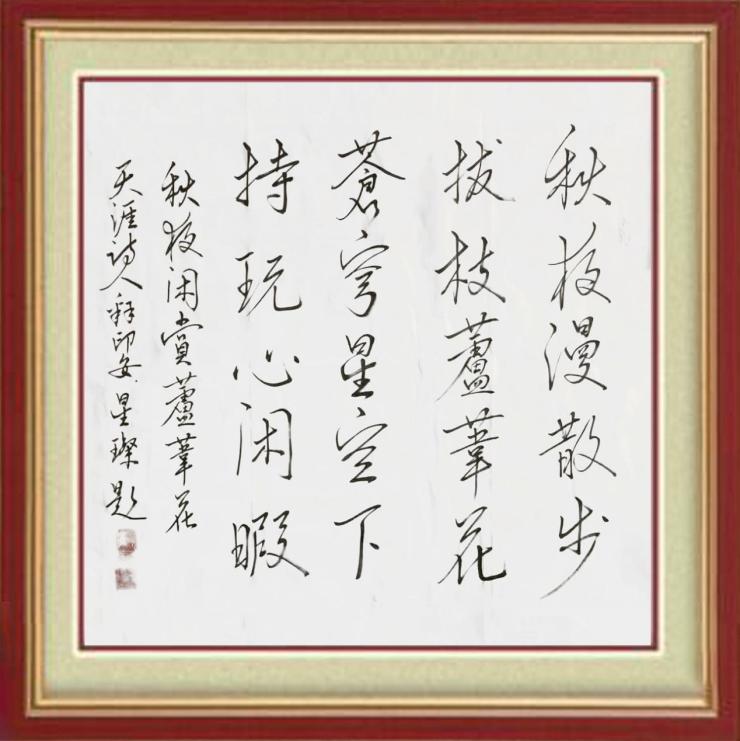 秋夜漫散步
拔枝蘆葦花
蒼穹星空下
持玩心闲暇
秋夜闲赏蘆葦花
天涯诗人释印安星璨题